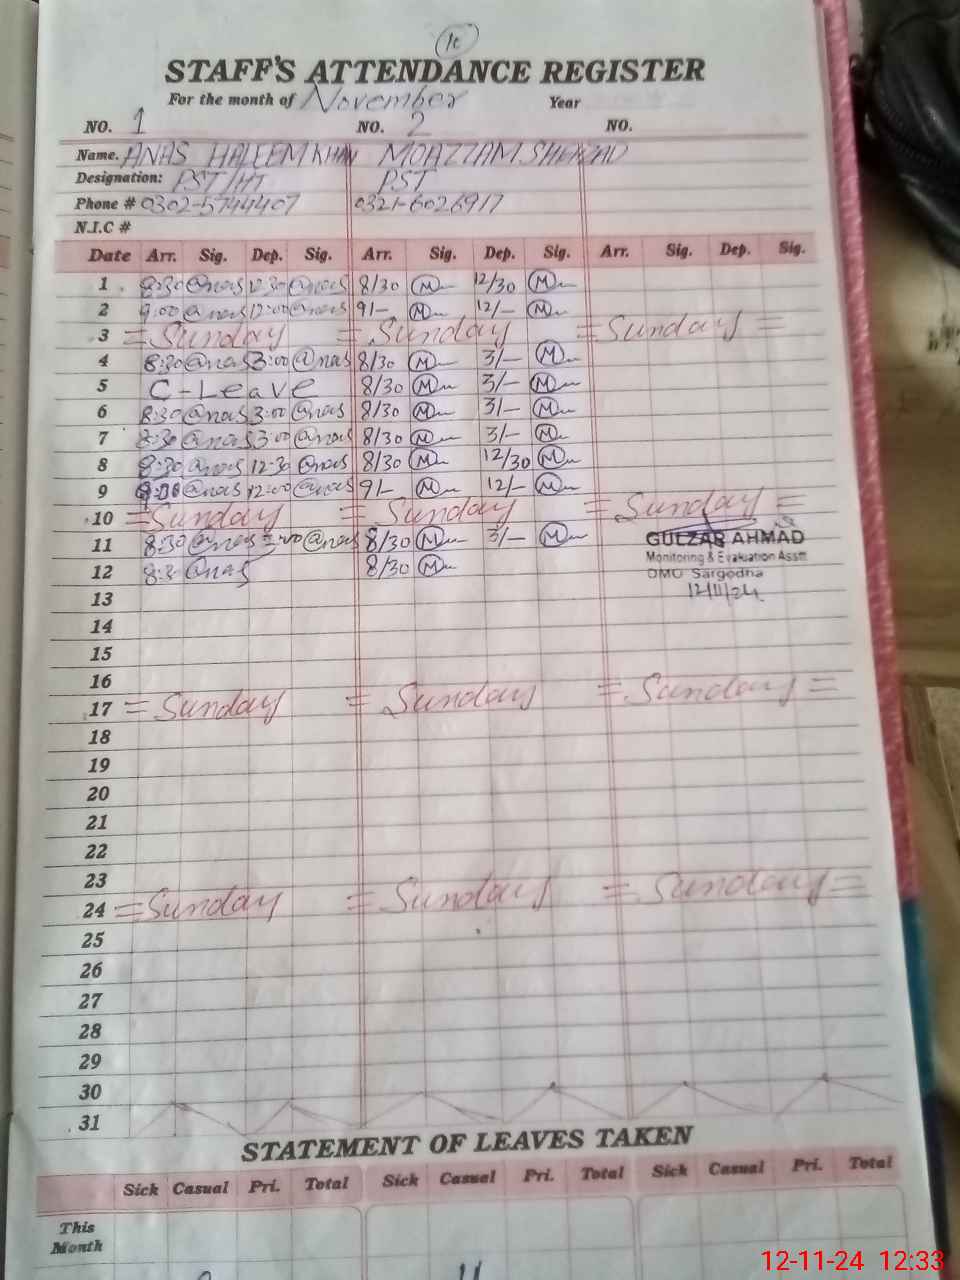 STAFF'S ATTENDANCE REGISTER
For the month of November Year
NO. 1 NO. 2 NO.
Name. ANAS HALEEM KHAN MOAZZAM SHEHZAD
Designation: PST/HT PST
Phone # 0302-5744407 0321-6026917
N.I.C #
Date Arr. Sig. Dep. Sig. Arr. Sig. Dep. Sig. Arr. Sig. Dep. Sig.
1 8:30 @nas 12:30 @nas 8/30 M 12/30 M
2 9:00 @nas 12:00 @nas 9/- M 12/- M
3 = Sunday = Sunday = Sunday =
4 8:30 @nas 3:00 @nas 8/30 M 3/- M
5 C-Leave 8/30 M 3/- M
6 8:30 @nas 3:00 @nas 8/30 M 3/- M
7 8:30 @nas 3:00 @nas 8/30 M 3/- M
8 8:30 @nas 12:30 @nas 8/30 M 12/30 M
9 9:00 @nas 12:00 @nas 9/- M 12/- M
10 = Sunday = Sunday = Sunday =
11 8:30 @nas 3:00 @nas 8/30 M 3/- M
GULZAR AHMAD
Monitoring & Evaluation Asstt
DMO Sargodha
12/11/24
12 8:30 @nas 8/30 M
13
14
15
16
17 = Sunday = Sunday = Sunday =
18
19
20
21
22
23
24 = Sunday = Sunday = Sunday =
25
26
27
28
29
30
31
STATEMENT OF LEAVES TAKEN
Sick Casual Pri. Total Sick Casual Pri. Total Sick Casual Pri. Total
This
Month
12-11-24 12:33